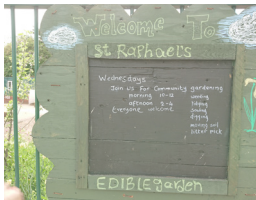 Welcome To
St Raphael's
Wednesdays
Join us For Community gardening
morning 10-12
afternoon 2-4
Everyone welcome
weeding
digging
EDIBLE garden